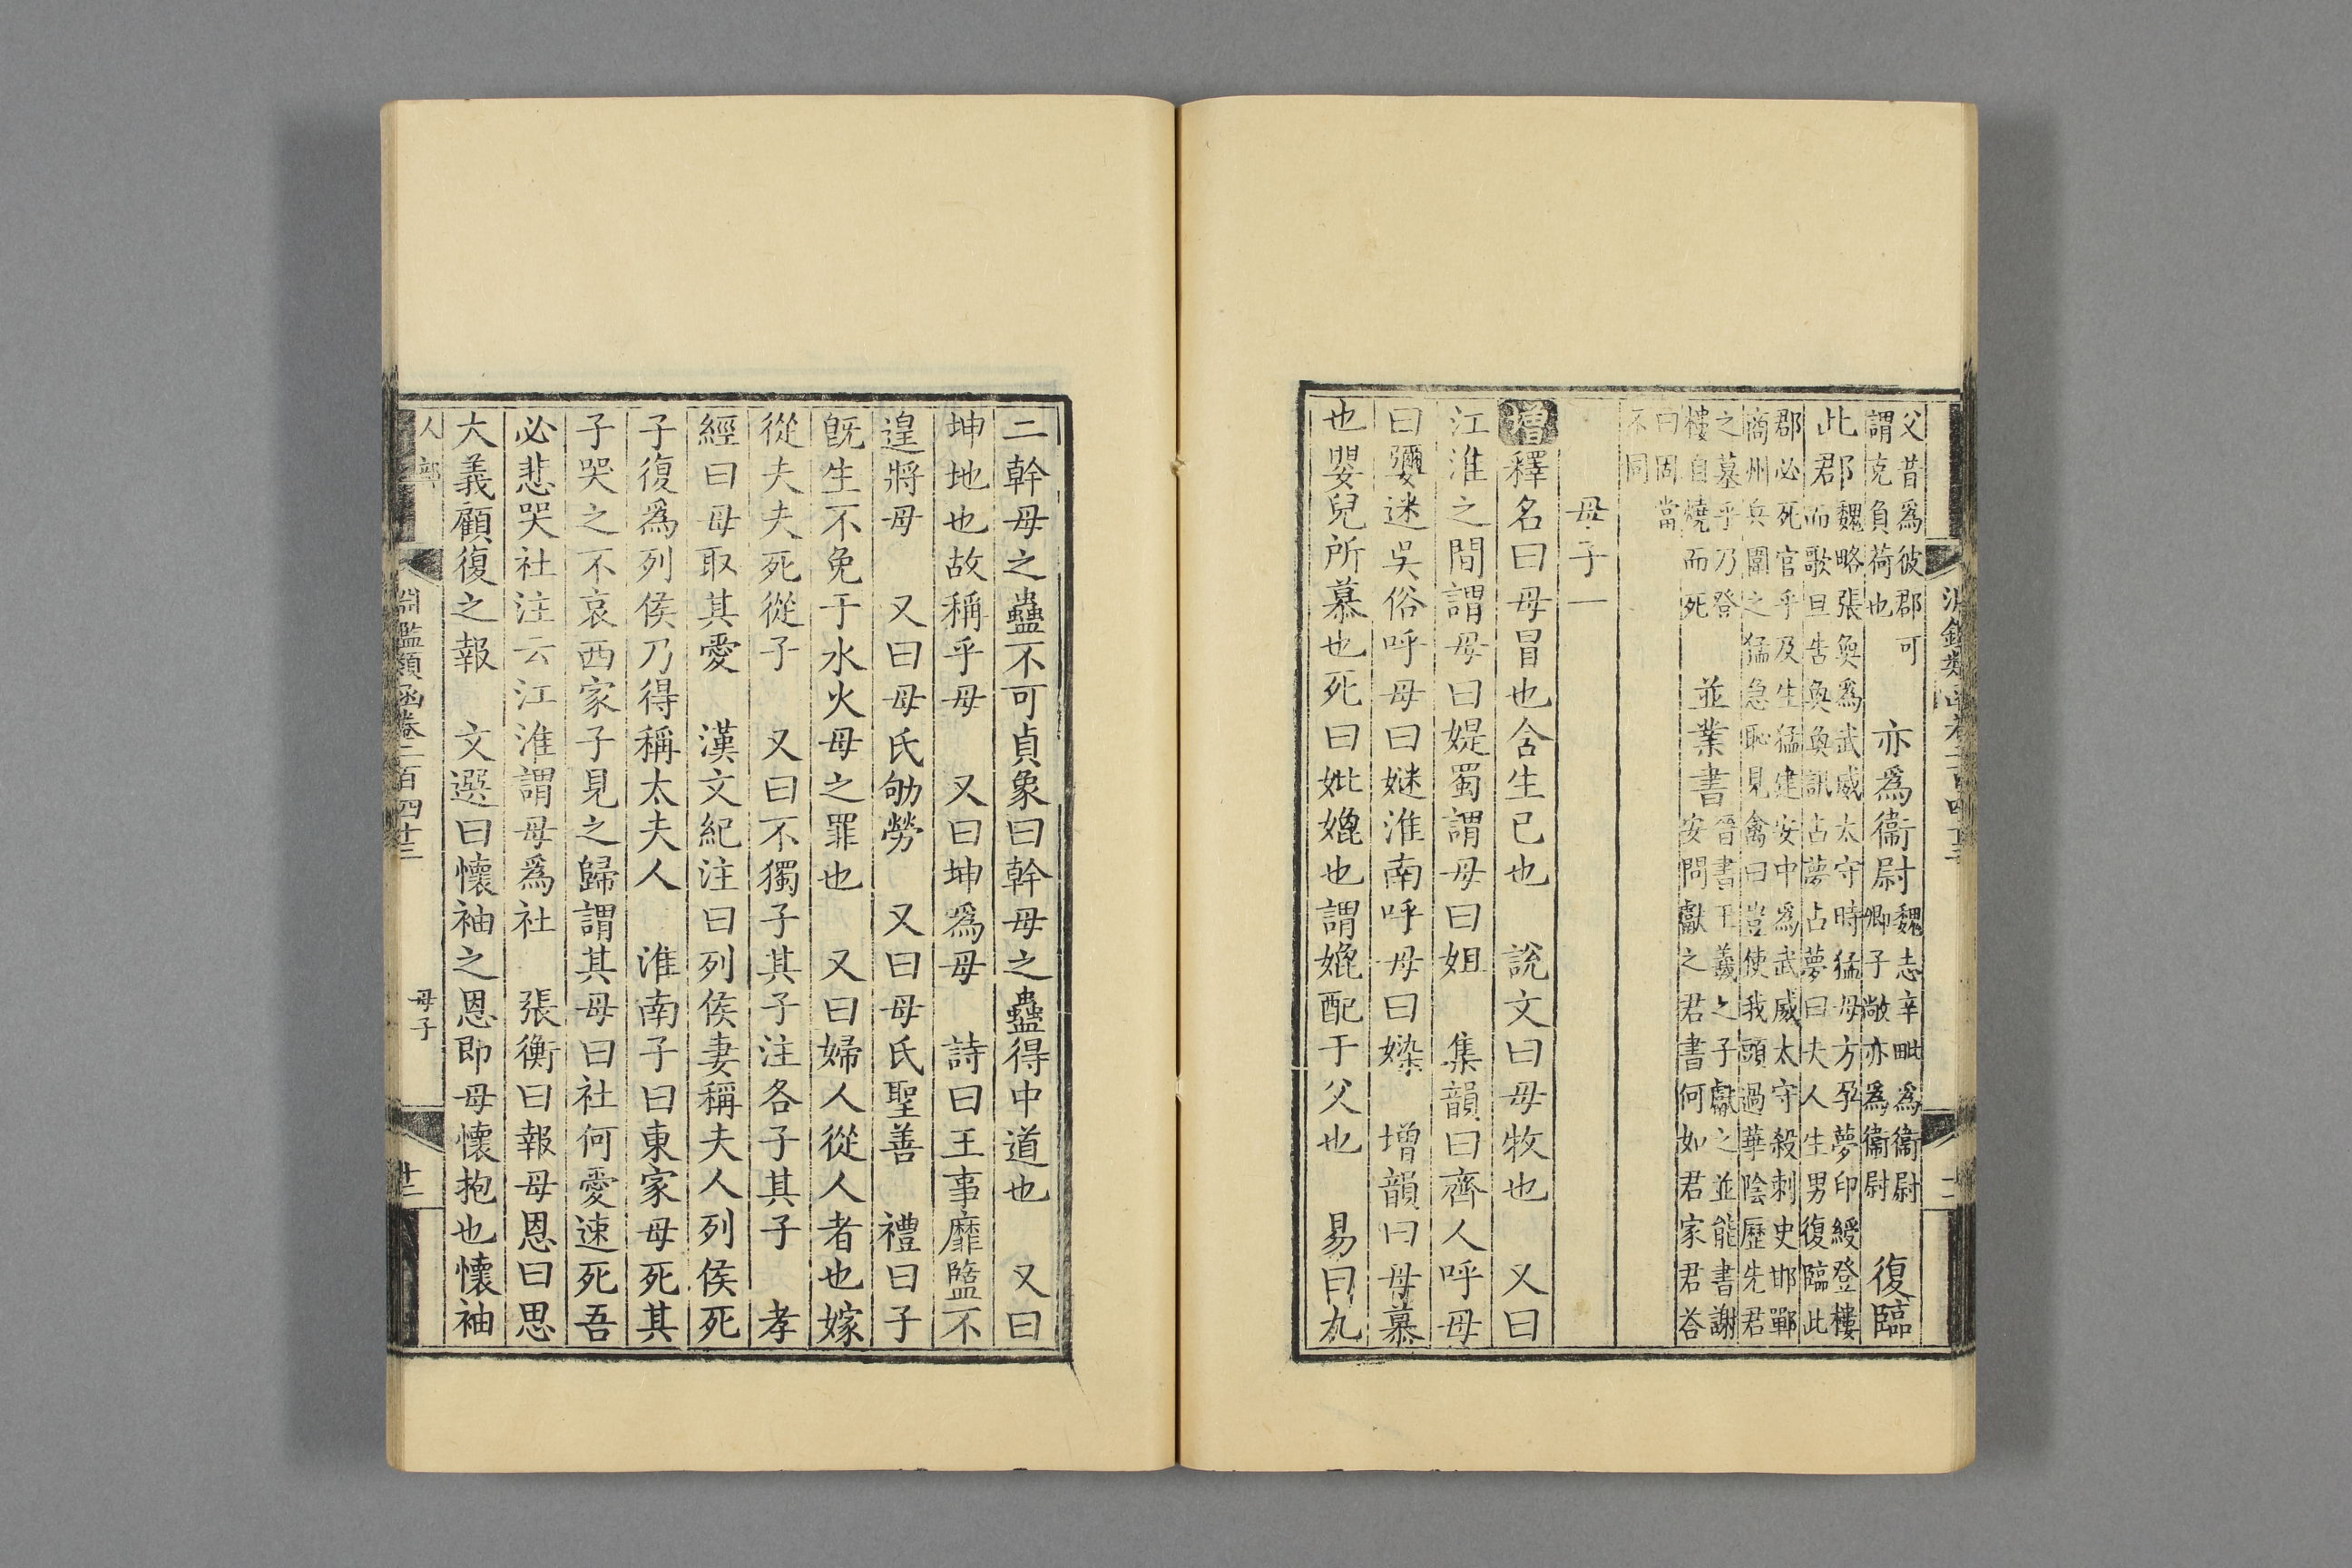 父昔爲彼郡可
謂克負荷也
亦爲衞尉
魏志辛毗爲衞尉
卿子敞亦爲衞尉
復臨
此郡
魏略張奐爲武威太守時猛母方孕夢印綬登樓
而歌旦告奐奐訊占夢占夢曰夫人生男復臨此
郡必死官乎及生猛建安中爲武威太守殺刺史邯鄲
商州兵圍之猛急恥見禽曰豈使我頭過華陰歷先君
之墓乎乃登
樓自燒而死
並業書
晉書王羲之子獻之並能書謝
安問獻之君書何如君家君答
曰固當
不同
母子一
增釋名曰母冒也含生已也 說文曰母牧也 又曰
江淮之間謂母曰媞蜀謂母曰姐 集韻曰齊人呼母
曰㜷迷吳俗呼母曰㜆淮南呼母曰媣 增韻曰母慕
也嬰兒所慕也死曰妣媲也謂媲配于父也 易曰九
二幹母之蠱不可貞象曰幹母之蠱得中道也 又曰
坤地也故稱乎母 又曰坤爲母 詩曰王事靡盬不
遑將母 又曰母氏劬勞 又曰母氏聖善 禮曰子
旣生不免于水火母之罪也 又曰婦人從人者也嫁
從夫夫死從子 又曰不獨子其子注各子其子 孝
經曰母取其愛 漢文紀注曰列侯妻稱夫人列侯死
子復爲列侯乃得稱太夫人 淮南子曰東家母死其
子哭之不哀西家子見之歸謂其母曰社何愛速死吾
必悲哭社注云江淮謂母爲社 張衡曰報母恩曰思
大義顧復之報 文選曰懷袖之恩即母懷抱也懷袖
人部
淵鑑類函卷二百四十三
母子